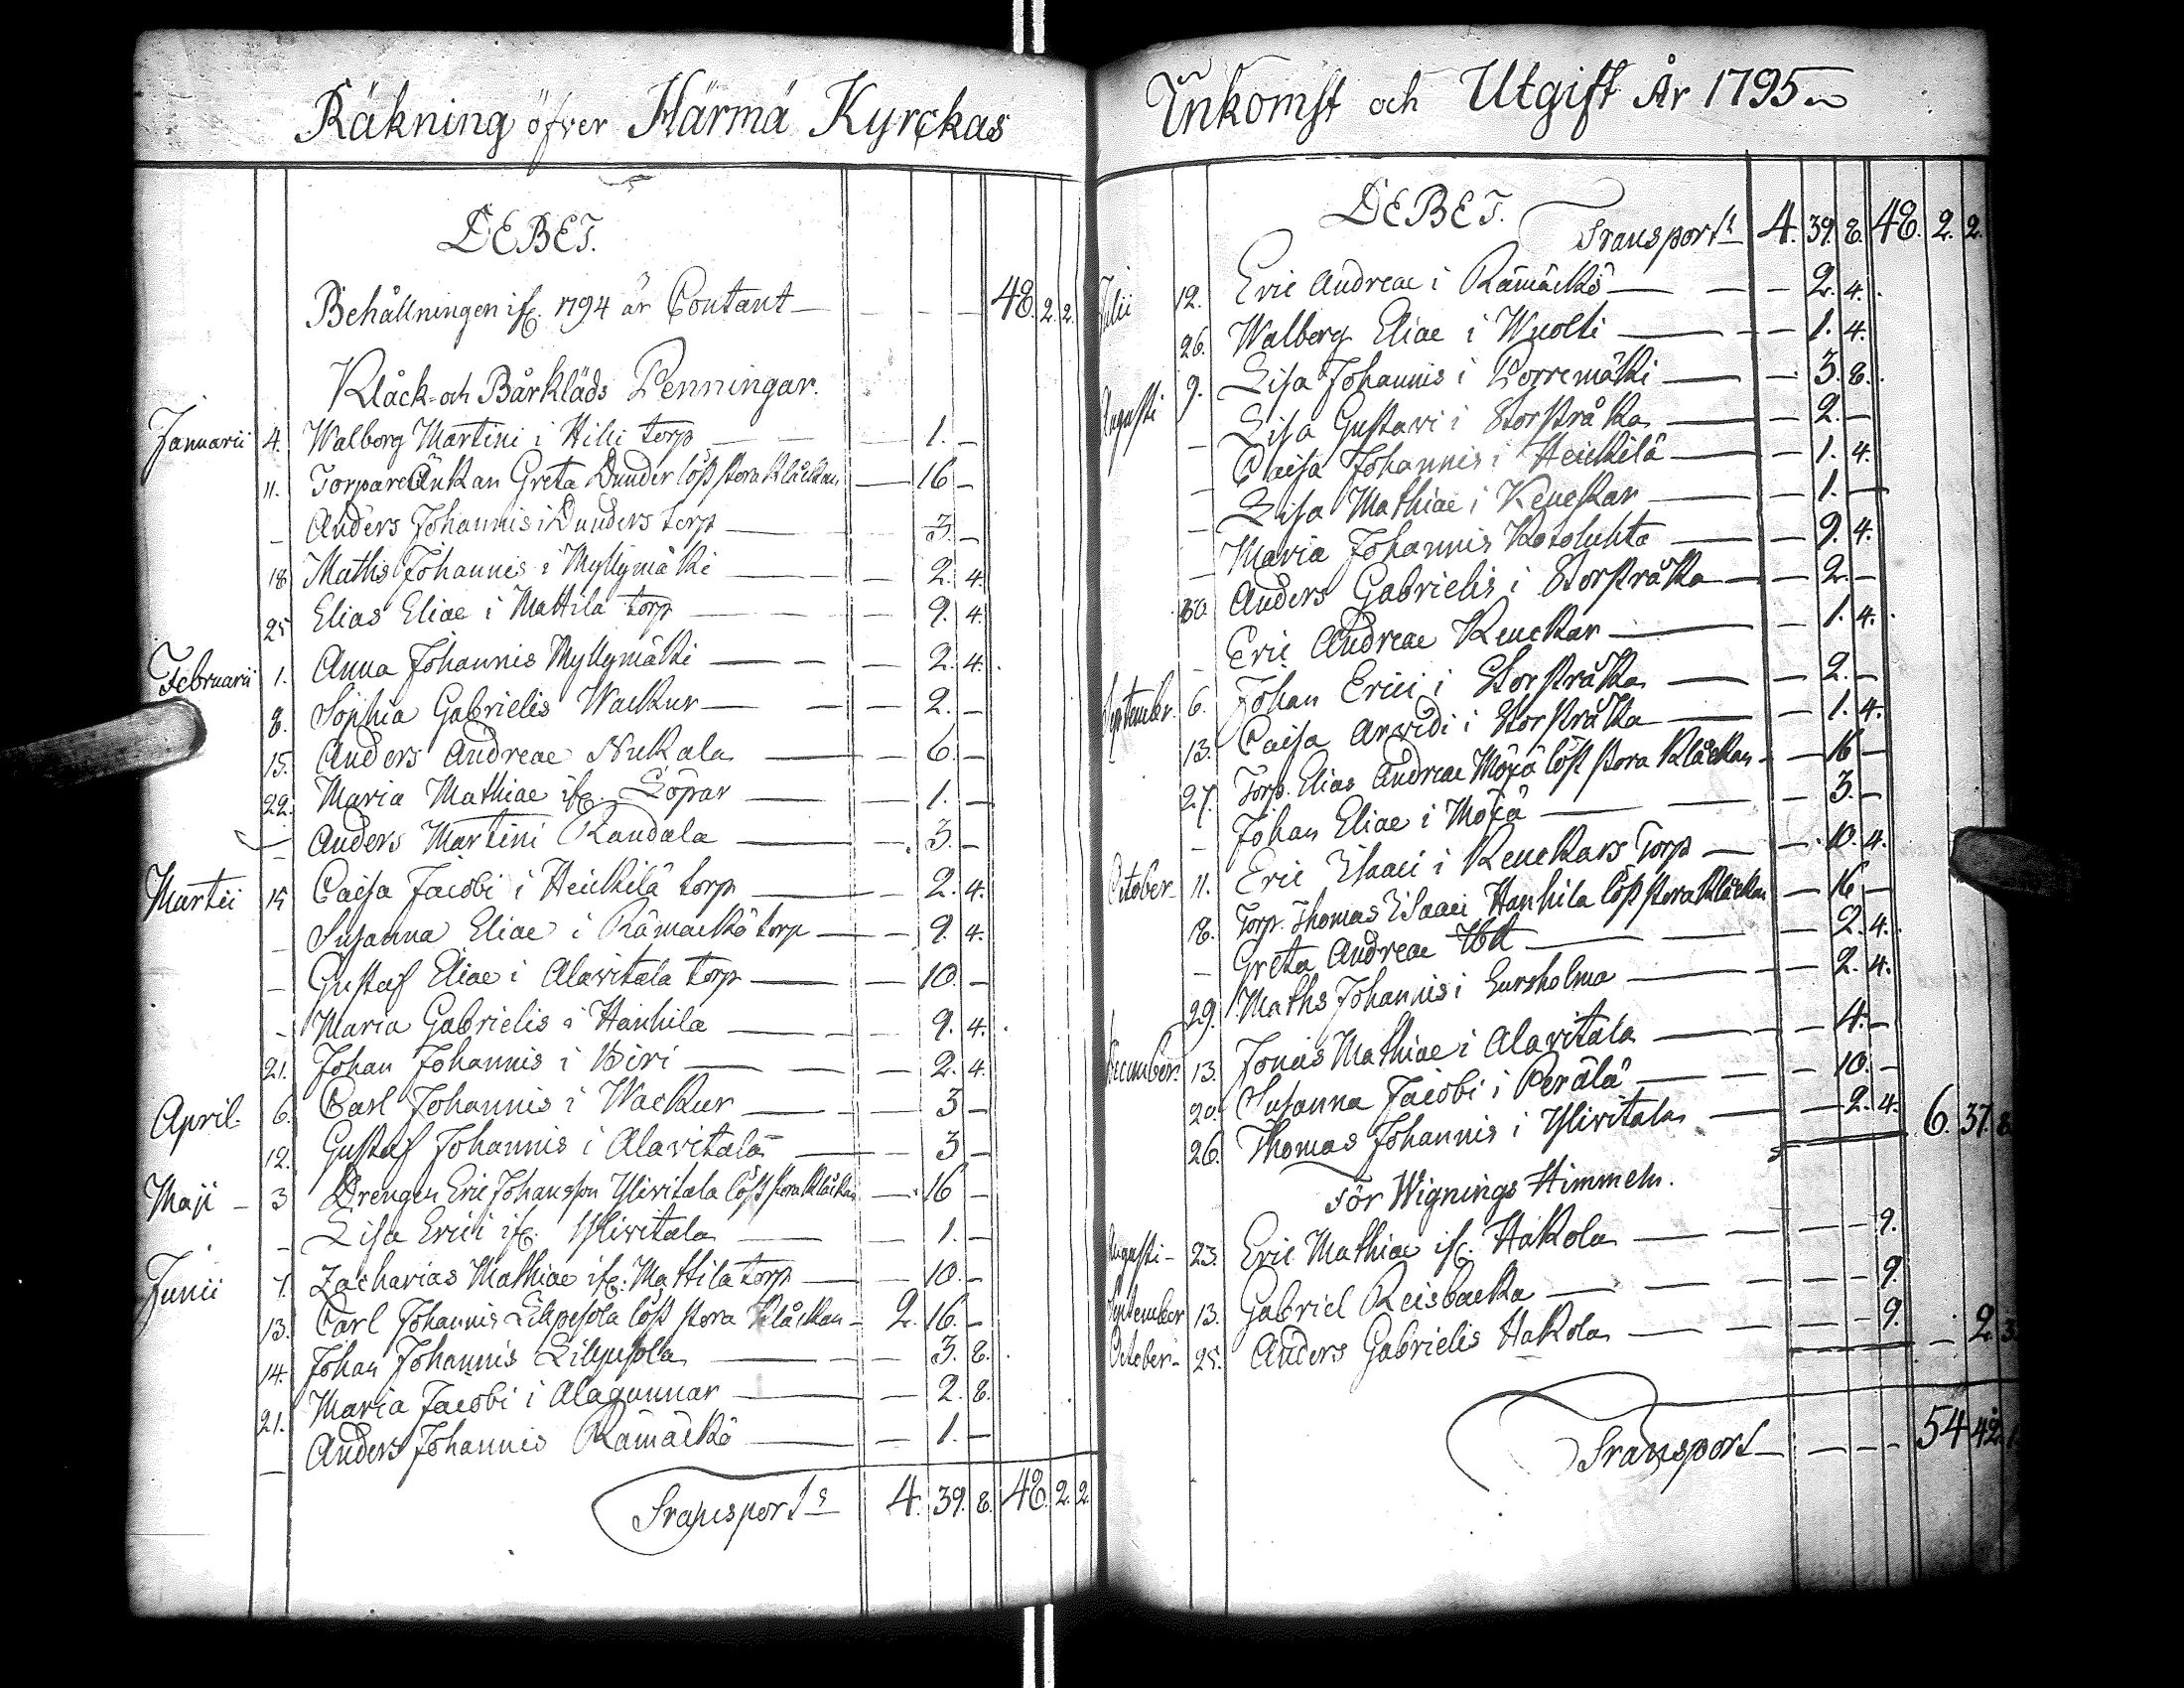 Räkning öfver Härmä Kyrckas
DEBET.
Behållningen ifr. 1794 är Contant — 48. 2. 2.
Klåck- och Bårkläds Penningar.
Januarii 4. Walborg Martini i Hilli torp — 1. —
11. Torpare Änkan Greta Dunder löst stora klåckan — 16 —
— Anders Johannis i Dunders torp — 3. —
18 Maths Johannis i Myllymäki — 2. 4.
25 Elias Eliae i Mattila torp — 9. 4.
Februarii 1. Anna Johannis Myllymäki — 2. 4.
8. Sophia Gabrielis Wackur — 2. —
15. Anders Andreae Nukala — 6. —
22. Maria Mathiae ifr. Löpar — 1. —
— Anders Martini Randala — 3. —
Martii 15 Caisa Jacobi i Heickilä torp — 2. 4.
— Susanna Eliae i Rämackö torp — 9. 4.
— Gustaf Eliae i Alavitala torp — 10. —
— Maria Gabrielis i Hanhila — 9. 4.
21. Johan Johannis i Wiri — 2. 4.
April. 6. Carl Johannis i Wackur — 3 —
12. Gustaf Johannis i Alavitala — 3 —
Maji — 3 Drengen Eric Johansson Ylivitala löst stora klåckan — 16 —
— Lisa Erici ifr. Ylivitala — 1. —
Junii 7. Zacharias Mathiae ifr. Mattila torp — 10. —
13. Carl Johannis Lillpesola löst stora Klåckan — 2. 16. —
14. Johan Johannis Lillpesola — 3. 8.
21. Maria Jacobi i Alagunnar — 2. 8.
— Anders Johannis Rämäckö — 1. —
Transport — 4. 39. 8. 48. 2. 2.
Inkomst och Utgift År 1795
DEBET. Transport — 4. 39. 8. 48. 2. 2.
Julii 12. Eric Andreae i Rämäckö — 2. 4.
26. Walborg Eliae i Wuolti — 1. 4.
Augusti 9. Lisa Johannis i Porremäki — 3. 8.
— Lisa Gustavi i Storstråka — 2. —
— Caisa Johannis i Heickilä — 1. 4.
— Lisa Mathiae i Kneckar — 1. —
— Maria Johannis Kotoluhta — 9. 4.
30. Anders Gabrielis i Storstråka — 2. —
— Eric Andreae Kneckar — 1. 4.
September. 6. Johan Erici i Storstråka — 2. —
13. Caisa Arvidi i Storstråka — 1. 4.
27. Torp. Elias Andreae löst stora Klåckan — 16 —
— Johan Eliae i — 3. —
October — 11. Eric Isaaci i Kneckars Torp — 10. 4.
18. Torp. Thomas Isaaci Hanhila löst stora Klåckan — 16 —
— Greta Andreae — 2. 4.
29. Maths Johannis i Lursholma — 2. 4.
December. 13. Jonas Mathiae i Alavitala — 4. —
20. Susanna Jacobi i Perälä — 10. —
26. Thomas Johannis i Ylivitala — 2. 4. 6. 37. 8
För Wignings Himmeln.
Augusti — 23. Eric Mathiae ifr. Hakola — 9.
September 13. Gabriel Reisbacka — 9.
October — 25. Anders Gabrielis Hakola — 9. — 2. 3
Transport — 54 42